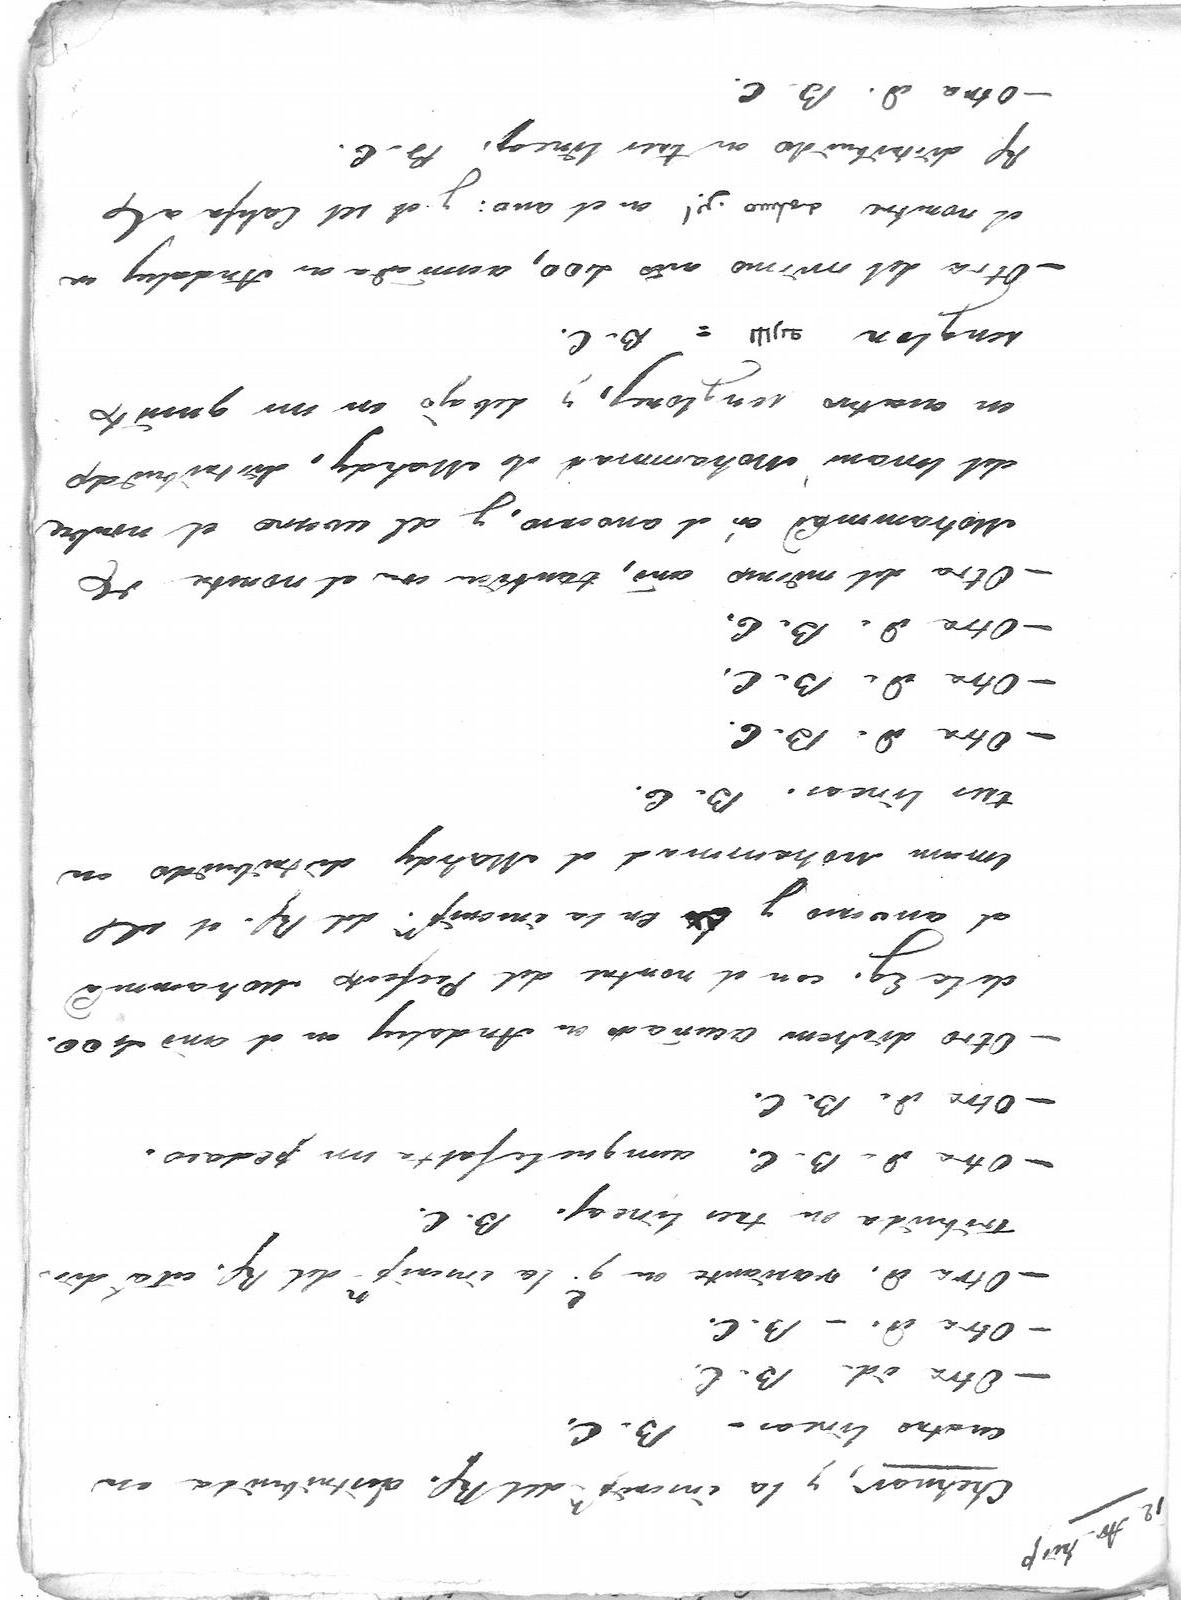 Chehuar, y la inscripⁿ del Rf. distribuida en
cuatro lineas - B. C.
- Otra id. B. C.
- Otra d. - B. C.
- Otra d. variante en q.e la inscripⁿ del Rf. está dis-
tribuida en tres lineas. B. C.
- Otra d. B. C. aunque le falta un pedazo.
- Otra d. B. C.
- Otro dirhem acuñado en Andaluz en el año 400.
de la Eg. con el nombre del Prefecto Mohammed
al anverso y en la inscripⁿ del Rf. el del
Imam Mohammad el Mahdy distribuido en
tres lineas. B. C.
- Otra d. B. C.
- Otra d. B. C.
- Otra d. B. C.
- Otra del mismo año, tambien con el nombre de
Mohammed en el anverso, y al reverso el nombre
del Imam Mohammad el Mahdy, distribuido
en cuatro renglones, y debajo en un quinto
renglon = B. C.
- Otra del mismo año 400, acuñada en Andaluz
el nombre en el anv: y el del Califa al
Rf distribuido en tres lineas. B. C.
- Otra d. B. C.